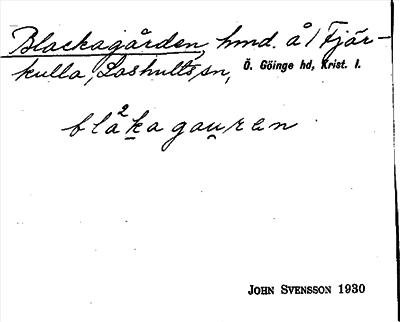 Blackagården, hmd. å 1 Fjär-
kulla, Loshults sn, Ö. Göinge hd, Krist. l.
blå²kagau̯ren
JOHN SVENSSON 1930